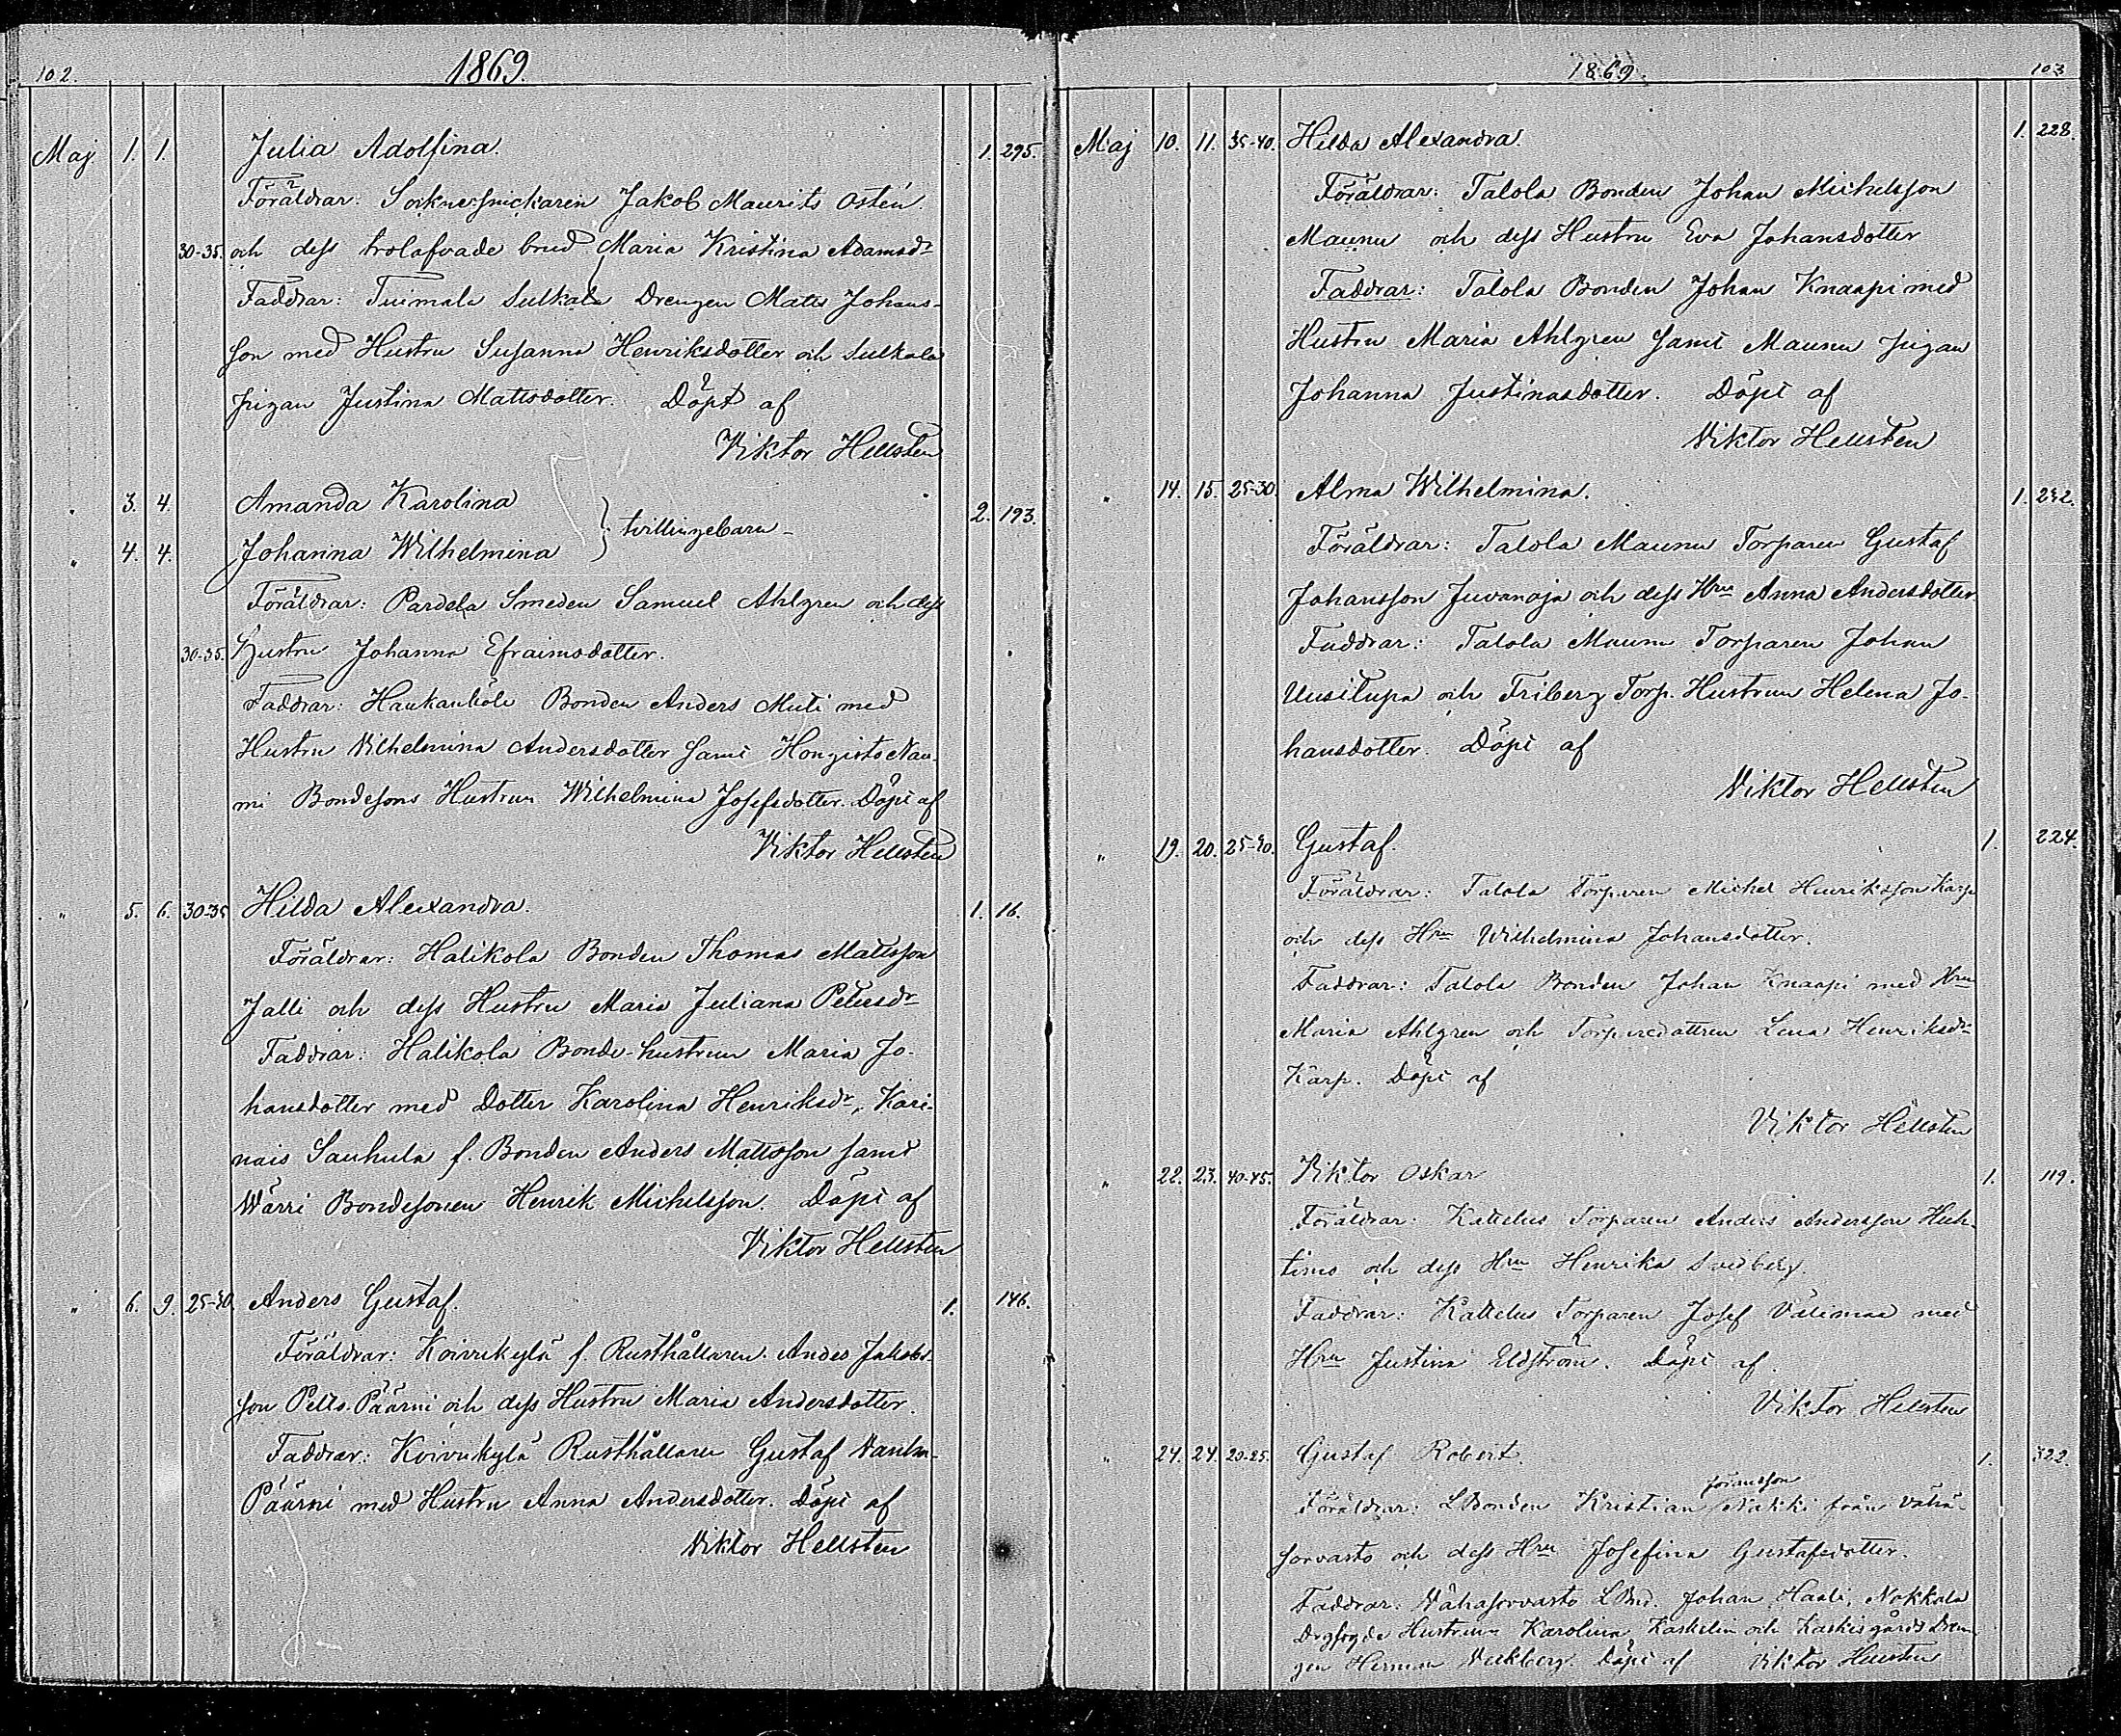 102.
1869.
Maj 1. 1. Julia Adolfina. 1. 295.
Föräldrar: Sockne snickaren Jakob Maurits Ostén
30-35. och dess trolofvade brud Maria Kristina Adamsdr
Faddrar: Tuimala Sulkala Drengen Matts Johans-
son med Hustru Susanna Henriksdotter och Sulkala
pigan Justina Mattsdotter. Döpt af
Viktor Hellsten
" 3. 4. Amanda Karolina 2. 193.
tvillingebarn
" 4. 4. Johanna Wilhelmina
Föräldrar: Pardela Smeden Samuel Ahlgren och dess
30-35. Hustru Johanna Efraimsdotter.
Faddrar: Haukanköla Bonden Anders Muti med
Hustru Vilhelmina Andersdotter samt Hongisto Nau-
mi Bondesons Hustrun Wilhelmina Josefsdotter. Döpt af
Viktor Hellsten
" 5. 6. 30-35 Hilda Alexandra. 1. 16.
Föräldrar: Halikola Bonden Thomas Mattsson
Jalli och dess Hustru Maria Juliana Petersdr
Faddrar: Halikola Bonde-hustrun Maria Jo-
hansdotter med Dotter Karolina Henriksdr, Kari-
nais Sauhula f. Bonden Anders Mattsson samt
Wärri Bondesonen Henrik Michelsson. Döpt af
Viktor Hellsten
" 6. 9. 25-30. Anders Gustaf. 1. 146.
Föräldrar: Koivukylä f. Rusthållaren Anders Jakobs-
son Pelto-Päärni och dess Hustru Maria Andersdotter.
Faddrar: Koivukylä Rusthållaren Gustaf Vanha-
Päärni med Hustru Anna Andersdotter. Döpt af
Viktor Hellsten
1869.
103
Maj 10. 11. 35-40. Hilda Alexandra. 1. 228.
Föräldrar: Talola Bonden Johan Michelsson
Maunu och dess Hustru Eva Johansdotter
Faddrar: Talola Bonden Johan Knaapi med
Hustru Maria Ahlgren samt Maunu pigan
Johanna Justinasdotter. Döpt af
Viktor Hellsten
" 14. 15. 25-30. Alma Wilhelmina. 1. 232.
Föräldrar: Talola Maunu Torparen Gustaf
Johansson Juvanoja och dess Hru Anna Andersdotter.
Faddrar: Talola Maunu Torparen Johan
Uusitupa och Friberg Torp. Hustrun Helena Jo-
hansdotter. Döpt af
Viktor Hellsten
" 19. 20. 25-30. Gustaf. 1. 224.
Föräldrar: Talola Torparen Michel Henriksson Karp
och dess Hru Wilhelmina Johansdotter.
Faddrar: Talola Bonden Johan Knaapi med Hru
Maria Ahlgren och Torparedottren Lena Henriksdr
Karp. Döpt af
Viktor Hellsten
" 22. 23. 40-45. Viktor Oskar 1. 119.
Föräldrar: Kattelus Torparen Anders Andersson Huh-
timo och dess Hru Henrika Svedberg.
Faddrar: Kattelus Torparen Josef Välimaa med
Hru Justina Eldström. Döpt af
Viktor Hellsten
" 24. 24. 20-25. Gustaf Robert. 1. 322.
Göransson
Föräldrar: LBonden Kristian Nakki från Vähä-
sorvasto och dess Hru Josefina Gustafsdotter.
Faddrar: Vähäsorvasto LBnd. Johan Haali, Nokkala
Drgfogde Hustrun Karolina Kaskelin och Kaskisgårds Dren-
gen Herman Vickberg. Döpt af Viktor Hellsten